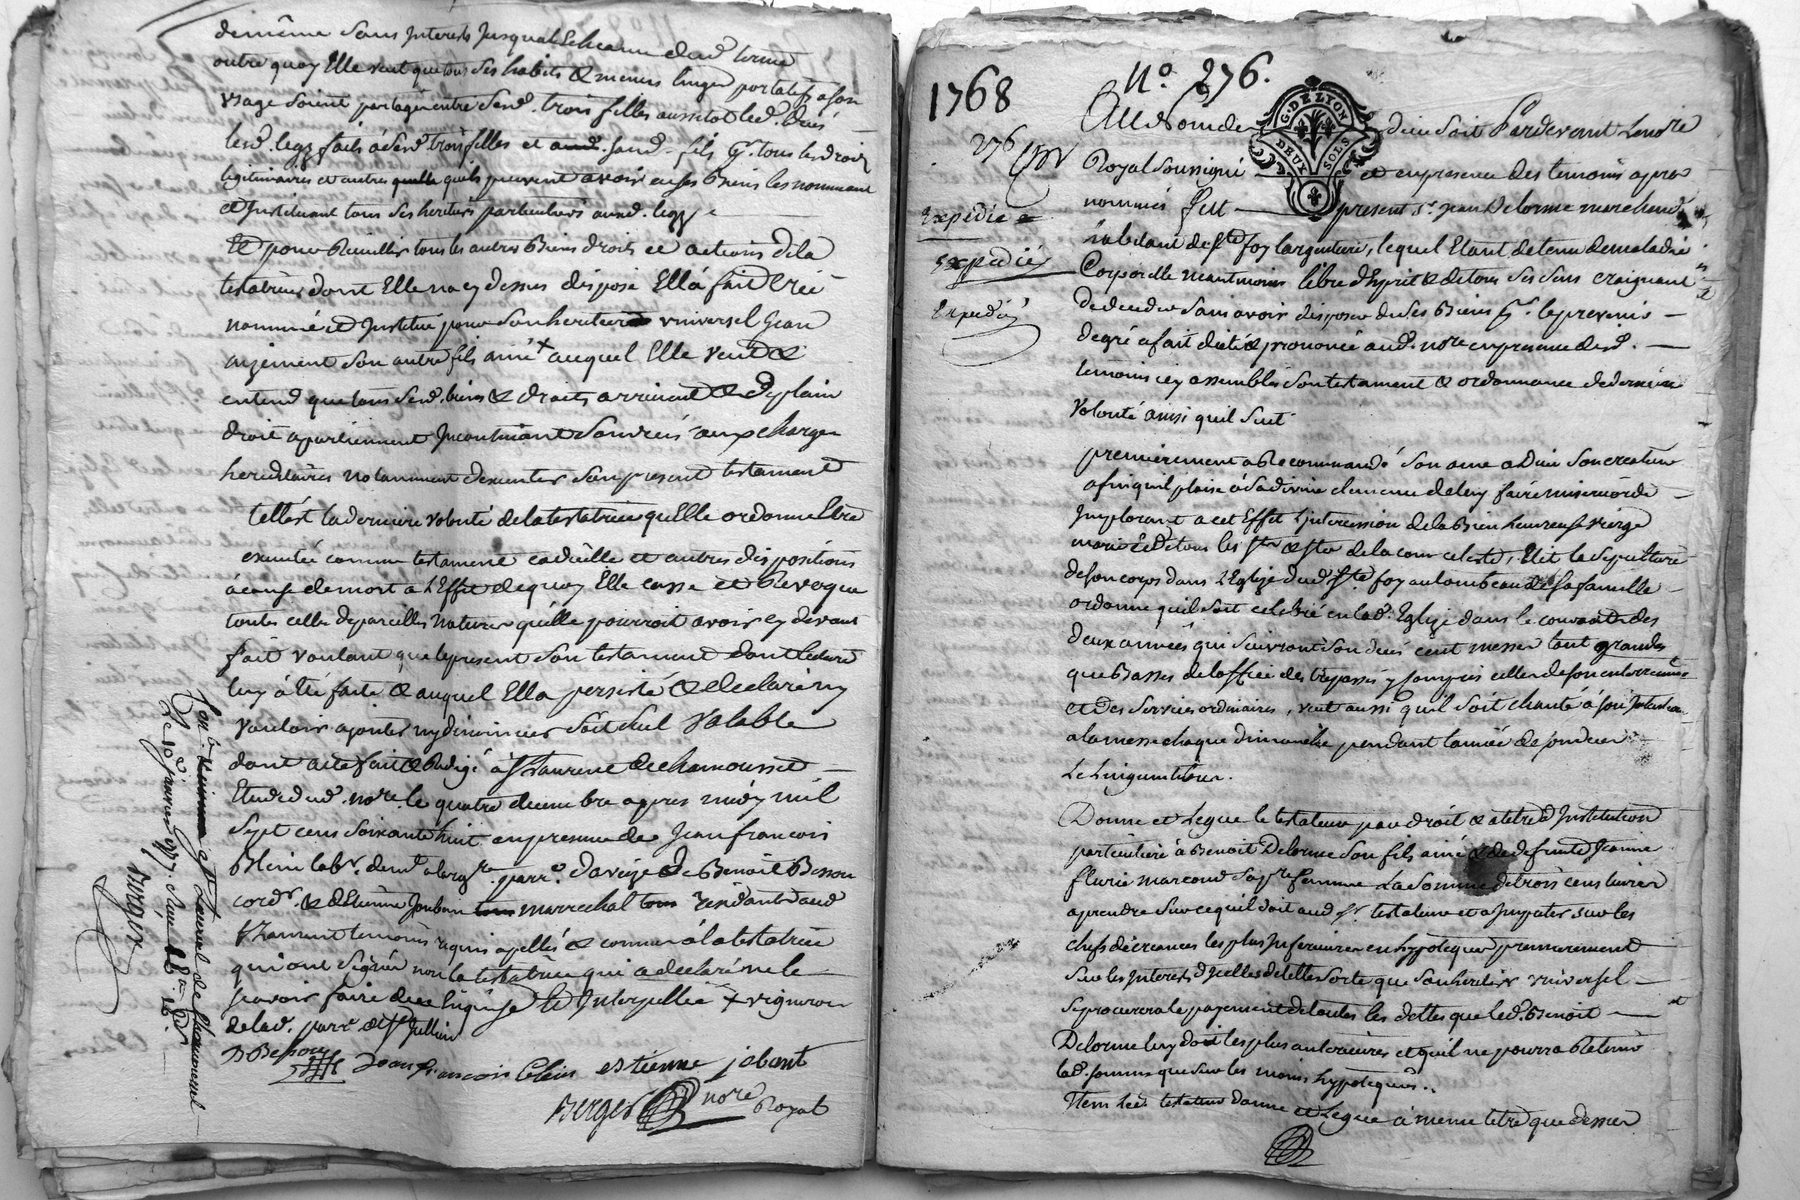 demême sans Interests Jusqual Echeance dud. terme
outre quoy Elle veut que tous ses habits & menus linges portatifs a son
usage soient partagés entre send. trois filles aussitot led. deces
lesd. legs faits á sesd. trois filles et aud. sand. fils p. tous les droits
legitimaires et autres quelle quils peuvent avoir en ses Biens les nommant
et Instituant tous ses heritiers particuliers aund. legs
Et pour Recuillir tous les autres Biens droits et actions dela
testatrice dont Elle na cy dessus disposé Ella fait Créé
nommé et Institué pour son heritier universel Jean
son autre fils ainé + auquel Elle veut &
entend que tous send. biens & droits arrivent & de plain
droit apartiennent Incontinant Son deces aux charges
hereditaires notamment dexecuter son present testament
telle est la derniere volonté dela testatrice quElle ordonne Etre
executée comme testament codicille et autres dispositions
á cause de mort a L'Effet de quoy Elle casse et Revoque
toutes celles de pareilles natures qu'elle pourroit avoir cy devant
fait voulant que le present son testament dont lecture
luy á été faite & auquel Ella persisté & declaré ny
vouloir ajouter ny diminuer soit seul valable
dont acte fait & Redigé à St Laurent de chamousset
Etude dud. nore. le quatre decembre apres midy mil
sept cens soixante huit en presence de Jean francois
Blein labr. demt. parr. daveize de Benoit Besson
cordr. & d'Etienne Jouban marrechal residants aud
St Laurent temoins requis apellés & connus á la testatrice
qui ont signés non la testatrice qui a declaré ne le
scavoir faire de ce Enquise et Interpellée + vigneron
de lad. parr. de St Jullien
B Besson Jean francois blein estienne jobant
Berger nore Royal
Con.lé a St Laurent de Chamousset
Le 10e janvier 1769. Reçu
Burger
1768
No. 276.
276
Expedié
Expedié
Expedié
G. DE LYON
DEUX SOLS
Au Nom de Dieu soit Pardevant Le nore
Royal soussigné et en presence des temoins apres
nommés fut present Sr. Jean Delorme marchand
habitant de Ste foy largentiere, lequel Etant detenu de maladie
Corporelle neantmoins libre d'Esprit & de tous ses sens craignant
de deceder sans avoir disposer de ses Biens pr. le prevenir
de gré a fait dicté & prononcé aud. nore en presence desd.
temoins icy assemblés son testament & ordonnance de derniere
volonté ainsi quil suit
premierement a Recommandé son ame a Dieu son createur
afin quil plaise á sa divine clemence de luy faire misericorde
Implorant a cet Effet L'intercession de la Bien heureuse vierge
marie & de tous les Sts & Stes de la cour celeste, Elit la sepulture
de son corps dans L'Eglize dud. Ste foy au tombeau de sa famille
ordonne quil soit celebré en lad. Eglize dans le courant des
deux années qui suivront son deces cent messes tant grandes
que Basses de loffice des trepassés y compris celles de son enterrement
et des services ordinaires, veut aussi quil soit chanté á son Intention
a la messe chaque dimanche pendant lannée de son deces
Le Lingua tibus.
Donne et Legue le testateur par droit & a titre d'Institution
particuliere á Benoit Delorme son fils ainé & de defunte Jeanne
flurie marcoud sa pre. femme La somme de trois cens livres
a prendre sur ce quil doit aud. sr testateur et a Imputer sur les
chefs de creances les plus Inferieures en hypoteques premierement
sur les Interets dycelles de telle sorte que son heritier universel
se procurera le payement de toutes les dettes que led. Benoit
Delorme luy doit les plus anterieures et quil ne pourra Retenir
lad. somme que sur les moins hypotequées.
Item led. testateur donne et Legue a meme titre que dessus